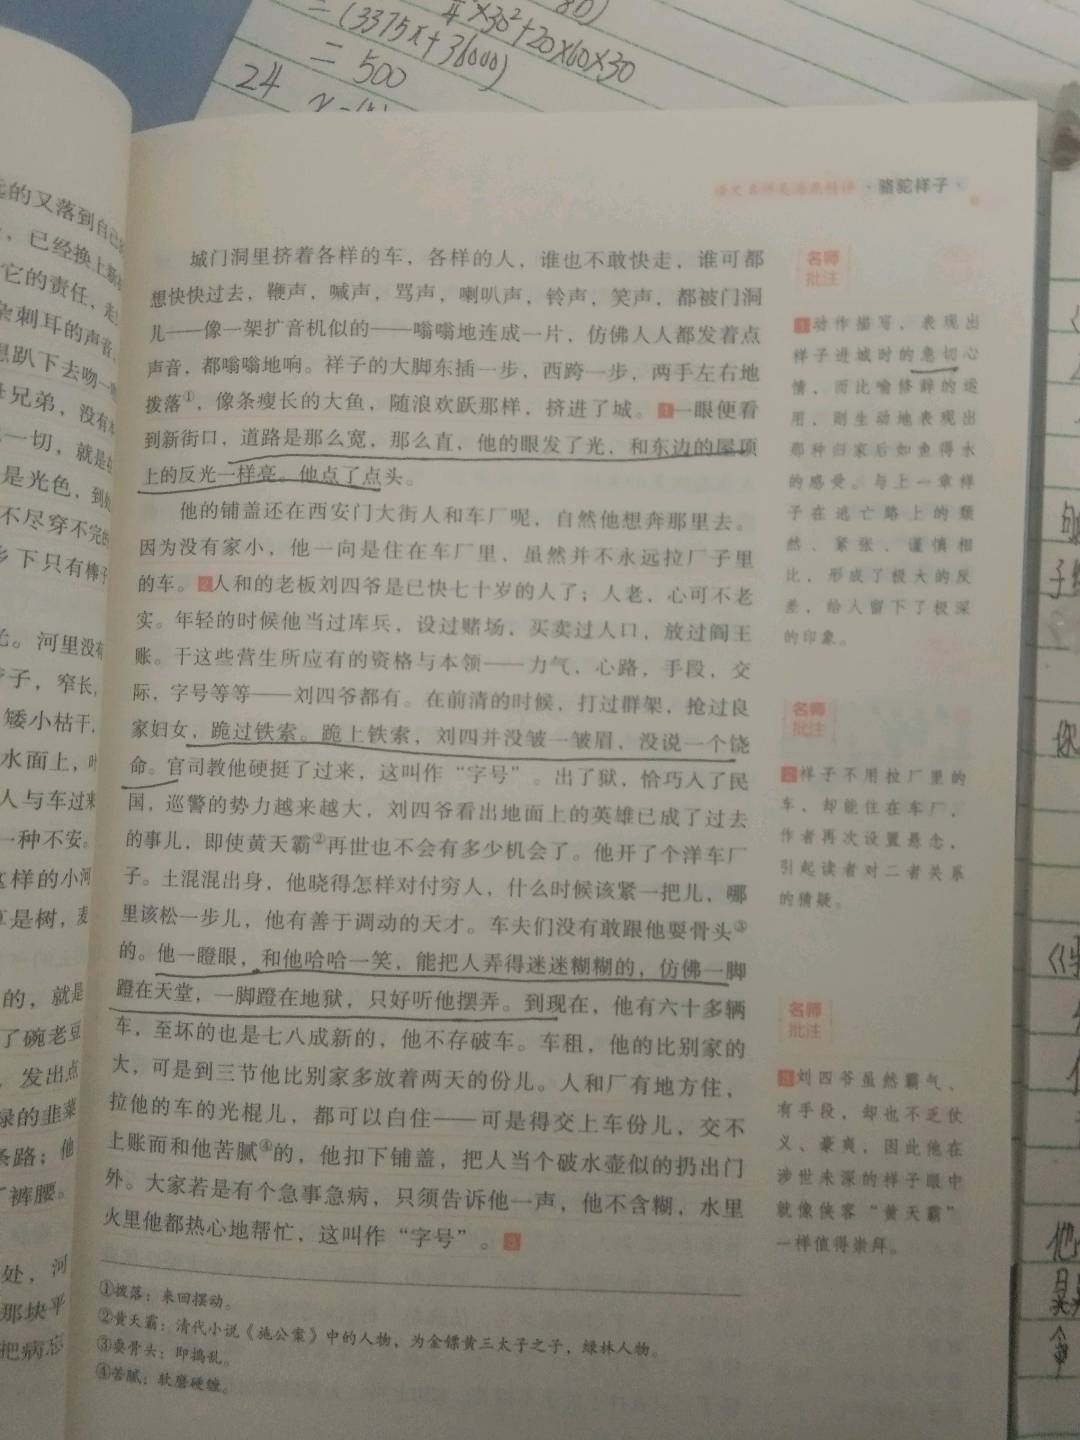 ×30²+20×60×30
=(3375π+36000)
=500
24
的又落到自己
，已经换上新
它的责任，走
杂刺耳的声音
想趴下去吻一
兄弟，没有
一切，就是
是光色，到处
不尽穿不完的
乡下只有棒子
。河里没有
子，窄长，
矮小枯干，
水面上，
人与车过来
一种不安。
这样的小河
是树，麦
的，就是
了碗老豆
，发出点
绿的韭菜
条路；他
了裤腰。
处，河
那块平
把病忘
·骆驼祥子·
城门洞里挤着各样的车，各样的人，谁也不敢快走，谁可都
想快快过去，鞭声，喊声，骂声，喇叭声，铃声，笑声，都被门洞
儿——像一架扩音机似的——嗡嗡地连成一片，仿佛人人都发着点
声音，都嗡嗡地响。祥子的大脚东插一步，西跨一步，两手左右地
拨落①，像条瘦长的大鱼，随浪欢跃那样，挤进了城。1一眼便看
到新街口，道路是那么宽，那么直，他的眼发了光，和东边的屋顶
上的反光一样亮。他点了点头。
他的铺盖还在西安门大街人和车厂呢，自然他想奔那里去。
因为没有家小，他一向是住在车厂里，虽然并不永远拉厂子里
的车。2人和的老板刘四爷是已快七十岁的人了；人老，心可不老
实。年轻的时候他当过库兵，设过赌场，买卖过人口，放过阎王
账。干这些营生所应有的资格与本领——力气，心路，手段，交
际，字号等等——刘四爷都有。在前清的时候，打过群架，抢过良
家妇女，跪过铁索。跪上铁索，刘四并没皱一皱眉，没说一个饶
命。官司教他硬挺了过来，这叫作“字号”。出了狱，恰巧入了民
国，巡警的势力越来越大，刘四爷看出地面上的英雄已成了过去
的事儿，即使黄天霸②再世也不会有多少机会了。他开了个洋车厂
子。土混混出身，他晓得怎样对付穷人，什么时候该紧一把儿，哪
里该松一步儿，他有善于调动的天才。车夫们没有敢跟他耍骨头③
的。他一瞪眼，和他哈哈一笑，能把人弄得迷迷糊糊的，仿佛一脚
蹬在天堂，一脚蹬在地狱，只好听他摆弄。到现在，他有六十多辆
车，至坏的也是七八成新的，他不存破车。车租，他的比别家的
大，可是到三节他比别家多放着两天的份儿。人和厂有地方住，
拉他的车的光棍儿，都可以白住——可是得交上车份儿，交不
上账而和他苦腻④的，他扣下铺盖，把人当个破水壶似的扔出门
外。大家若是有个急事急病，只须告诉他一声，他不含糊，水里
火里他都热心地帮忙，这叫作“字号”。3
①拨落：来回摆动。
②黄天霸：清代小说《施公案》中的人物，为金镖黄三太子之子，绿林人物。
③耍骨头：即捣乱。
④苦腻：软磨硬缠。
名师
批注
1动作描写，表现出
祥子进城时的急切心
情，而比喻修辞的运
用，则生动地表现出
那种归家后如鱼得水
的感受。与上一章祥
子在逃亡路上的颓
然、紧张、谨慎相
比，形成了极大的反
差，给人留下了极深
的印象。
名师
批注
2祥子不用拉厂里的
车，却能住在车厂，
作者再次设置悬念，
引起读者对二者关系
的猜疑。
名师
批注
3刘四爷虽然霸气、
有手段，却也不乏仗
义、豪爽，因此他在
涉世未深的祥子眼中
就像侠客“黄天霸”
一样值得崇拜。